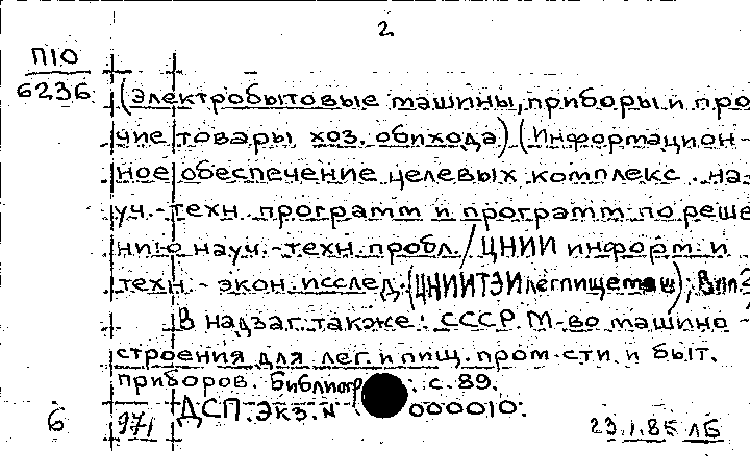 2
П10
6236
(Электробытовые машины, приборы и про
чие товары хоз. обихода) (Информацион-
ное обеспечение целевых комплекс. на
уч.-техн. программ и программ по реше
нию науч.-техн. пробл. / ЦНИИ информ. и
техн.-экон. исслед. (ЦНИИТЭИлегпищемаш);
В надзаг. также: СССР. М-во машино-
строения для лег. и пищ. пром-сти и быт.
приборов. Библиогр.: с. 89.
ДСП. Экз. N 000010.
6 971 23.1.85 ЛБ